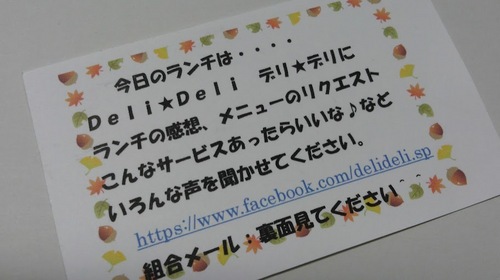 今日のランチは・・・・
Deli★Deli デリ★デリに
ランチの感想、メニューのリクエスト
こんなサービスあったらいいな♪など
いろんな声を聞かせてください。
https://www.facebook.com/delideli.sp
組合メール：裏面見てください＾＾